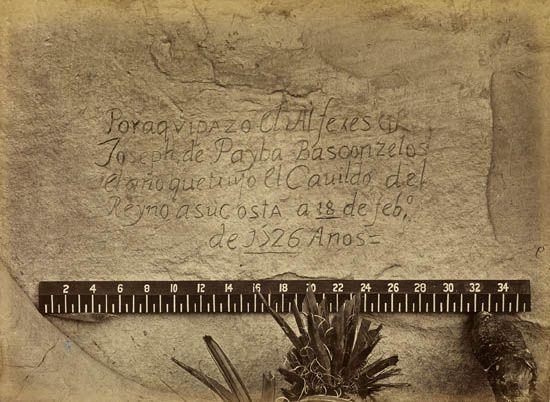 Por aqui pazo el Alferes Dn
Joseph de Payba Basconzelos
el año que tuyo el Cauildo del
Reyno a su costa a 18 de febo
de 1726 Años=
2 4 6 8 10 12 14 16 18 20 22 24 26 28 30 32 34